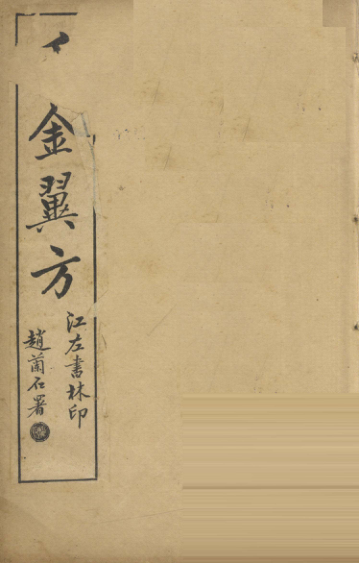 金翼方
江左書林印
趙蘭石署